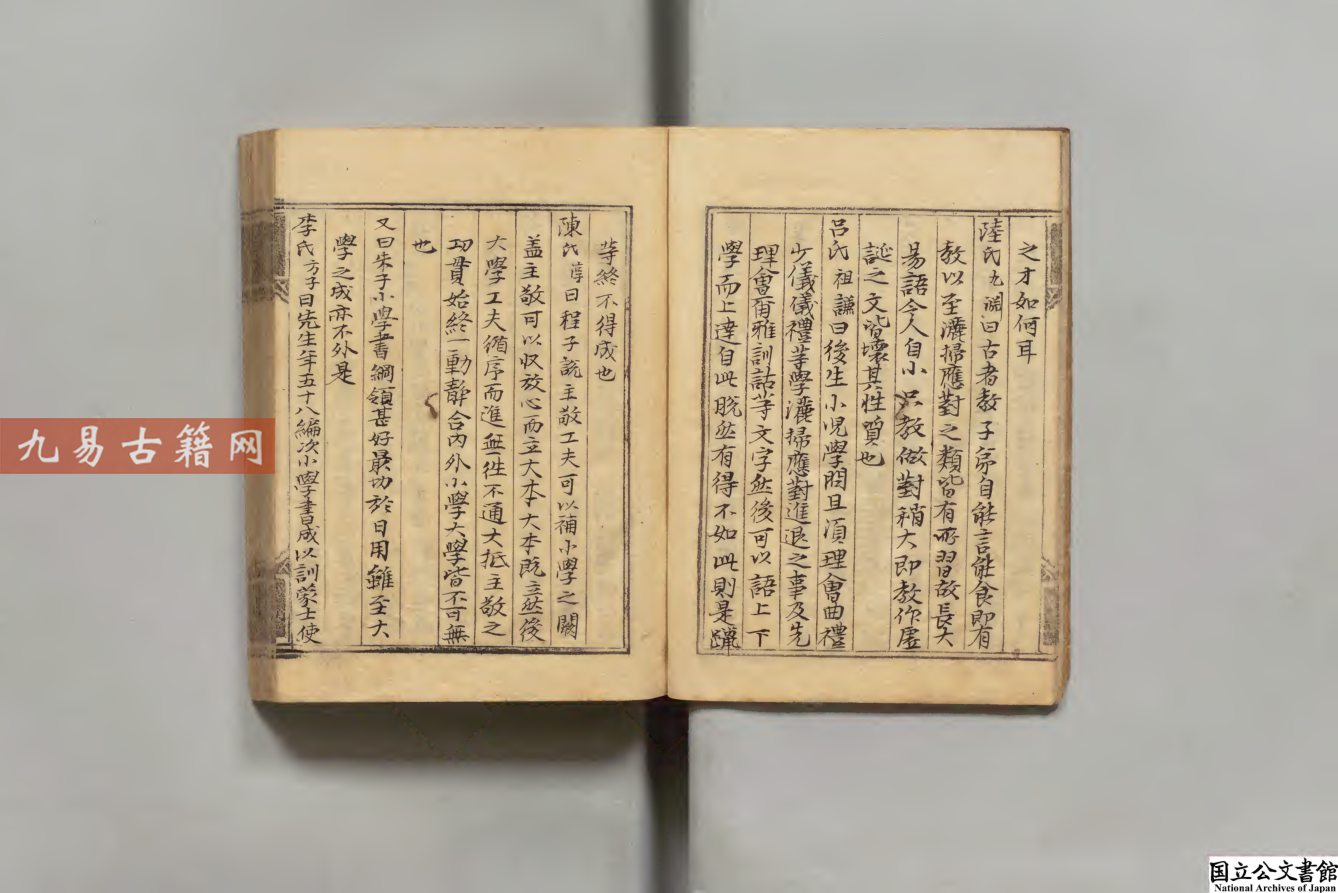 之才如何耳
陸氏九淵曰古者教子弟自能言能食即有
教以至灑掃應對之類皆有所習故長大
易語今人自小只教做對稍大即教作虛
誕之文皆壞其性質也
呂氏祖謙曰後生小児學問且須理會曲禮
少儀儀禮等學灑掃應對進退之事及先
理會爾雅訓詁等文字然後可以語上下
學而上達自此脫然有得不如此則是躐
等終不得成也
陳氏淳曰程子說主敬工夫可以補小學之闕
盖主敬可以收放心而立大本大本既立然後
大學工夫循序而進無徃不通大抵主敬之
功貫始終一動靜合內外小學大學皆不可無
也
又曰朱子小學書綱領甚好最切於日用雖至大
學之成亦不外是
李氏方子曰先生年五十八編次小學書成以訓蒙士使
九易古籍网
国立公文書館
National Archives of Japan